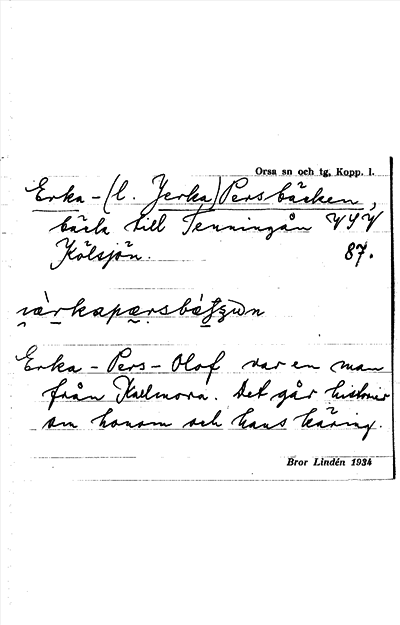 Orsa sn och tg, Kopp. l.
Erka-(l. Jerka)Persbäcken,
bäck till Tenningån VSV
Kölsjön. 87.
Erka-Pers-Olof var en man
från Kallmora. Det går historier
om honom och hans käring.
Bror Lindén 1934